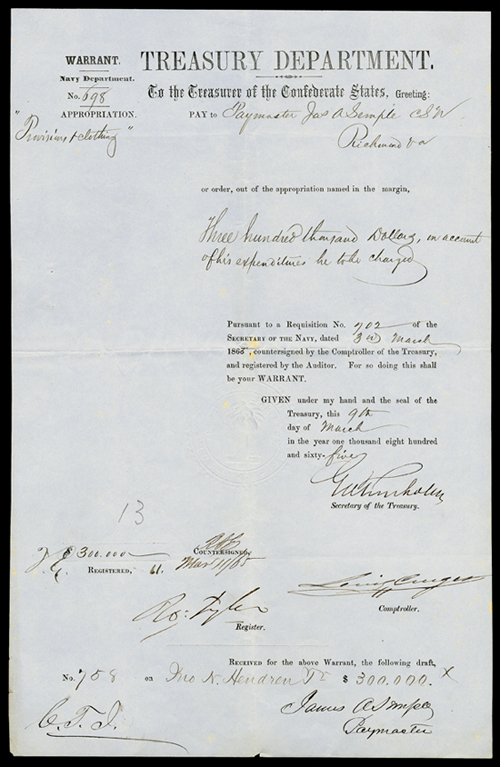 WARRANT.
Navy Department.
No. 698
APPROPRIATION.
"Provisions & clothing"
TREASURY DEPARTMENT.
To the Treasurer of the Confederate States, Greeting:
PAY to Paymaster Jas A Semple CSN
Richmond Va
or order, out of the appropriation named in the margin,
Three hundred thousand Dollars, on account
of his expenditures he to be charged
Pursuant to a Requisition No. 902 of the
SECRETARY OF THE NAVY, dated 3rd March
1865, countersigned by the Comptroller of the Treasury,
and registered by the Auditor. For so doing this shall
be your WARRANT.
GIVEN under my hand and the seal of the
Treasury, this 9th
day of March
in the year one thousand eight hundred
and sixty-five
Secretary of the Treasury.
13
$300.000
COUNTERSIGNED,
REGISTERED, 61. Mar 11/65
Comptroller.
Ro: Tyler
Register.
RECEIVED for the above Warrant, the following draft,
No. 758 on Jno N. Hendren Tr $ 300.000. x
James A Semple
Paymaster
C.T.J.